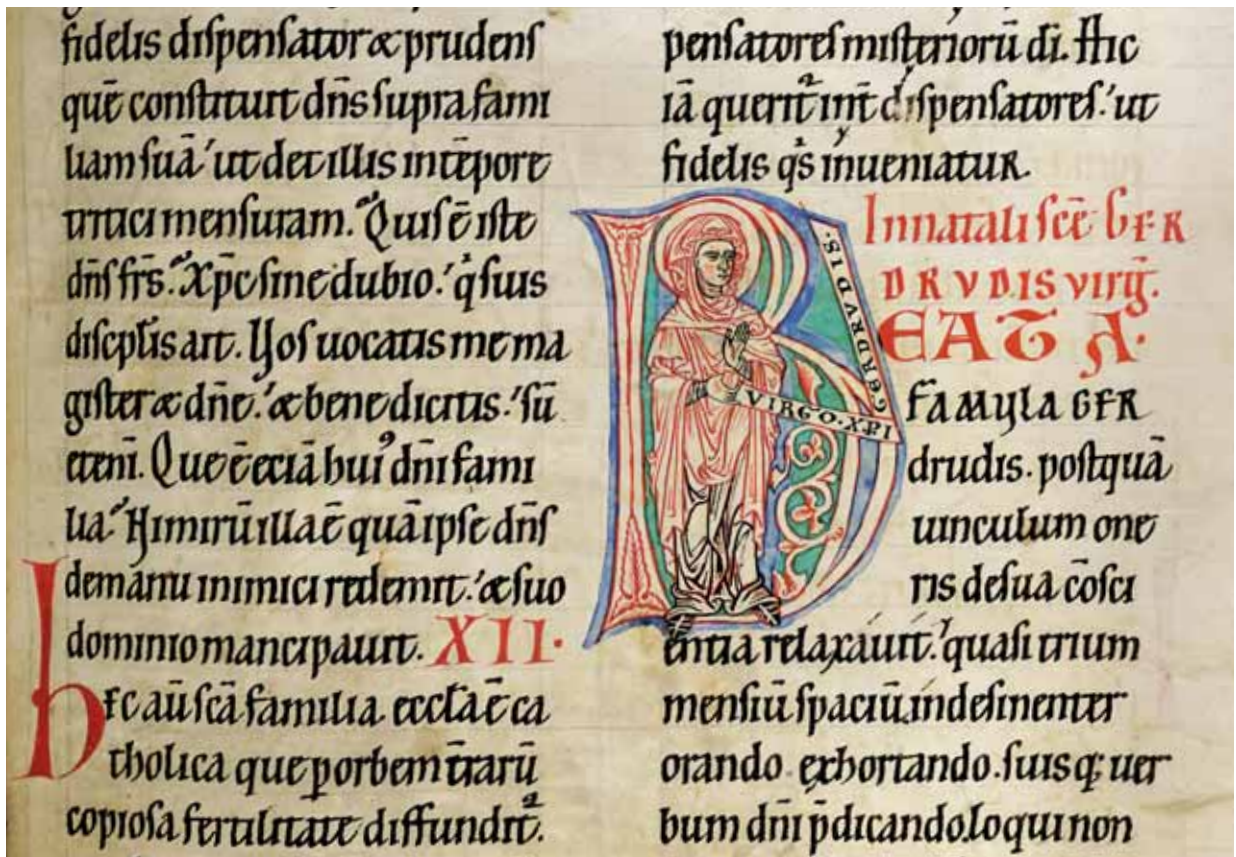 fidelis dispensator & prudens
quē constituit dn̄s supra fami
liam suā ut det illis in tēpore
tritici mensuram. Quis ē iste
dn̄s fr̄s. Xp̄c sine dubio. qͥ suis
discipl̓is ait. Vos uocatis me ma
gister & dn̄e. & bene dicitis. sū
eteni. Que ē eciā huiꝰ dn̄i fami
lia. Nimirū illa ē quā ipse dn̄s
de manu inimici redemit. & suo
dominio mancipauit. XII.
hec aū scā familia eccl̄a ē ca
tholica que ꝑ orbem t̄rarū
copiosa fertilitate diffundit᷑.
pensatores misteriorū di. Hic
iā querit᷑ int̄ dispensatores. ut
fidelis qͥs inueniatur.
In natali scē GER
DRVDIS virḡ.
EATA
famula GER
drudis. postquā
uinculum one
ris de sua c̄osci
entia relaxauit. quasi trium
mensiū spaciū indesinenter
orando. exhortando. suisqꝫ uer
bum dn̄i p̄dicando. loqui non
GERDRVDIS.
VIRGO.XP̄I